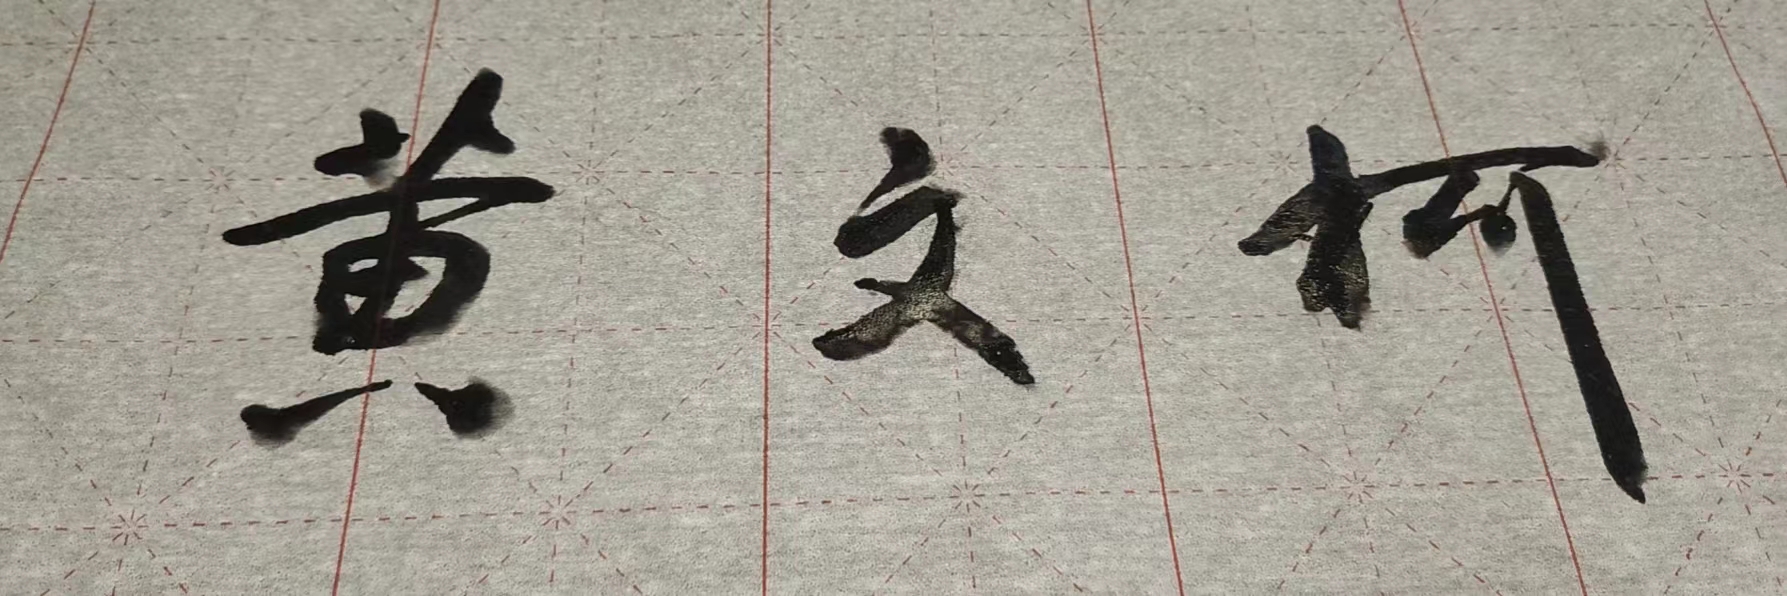 黄文柯